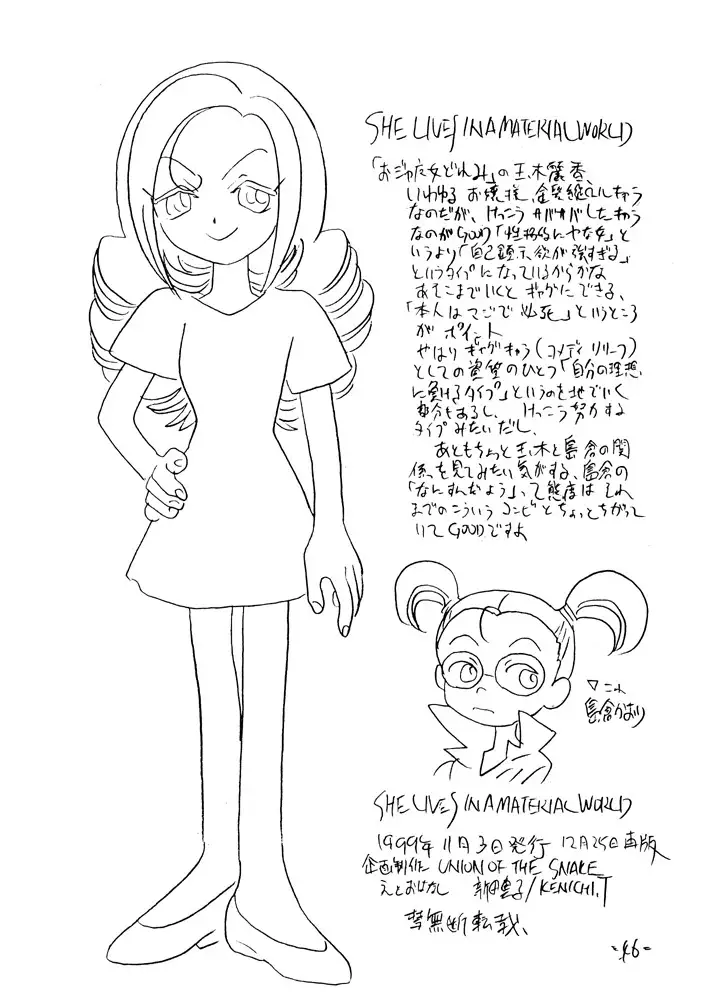 SHE LIVES IN A MATERIAL WORLD
「おジャ魔女どれみ」の玉木麗香、
いわゆる お嬢様、金髪縦ロールキャラ
なのだが、けっこう サバサバしたキャラ
なのがGOOD「性格的にヤな女」と
いうより「自己顕示欲が強すぎる」
というタイプになっているからかな
あそこまでいくと ギャグにできる、
「本人はマジで必死」というところ
が ポイント
やはり ギャグキャラ(コメディリリーフ)
としての資質のひとつ「自分の理想
に負けるタイプ」というのを地でいく
部分もあるし、 けっこう努力する
タイプ みたいだし、
あともちょっと玉木と島倉の関
係を見てみたい気がする、島倉の
「なにすんだよう」って態度は それ
までのこういう コンビとちょっとちがって
いてGOODですよ
▽これ
島倉かおり
SHE LIVES IN A MATERIAL WORLD
1999年11月3日発行 12月25日再版
企画制作 UNION OF THE SNAKE
えとおはなし /KENICHI.T
禁無断転載、
-46-